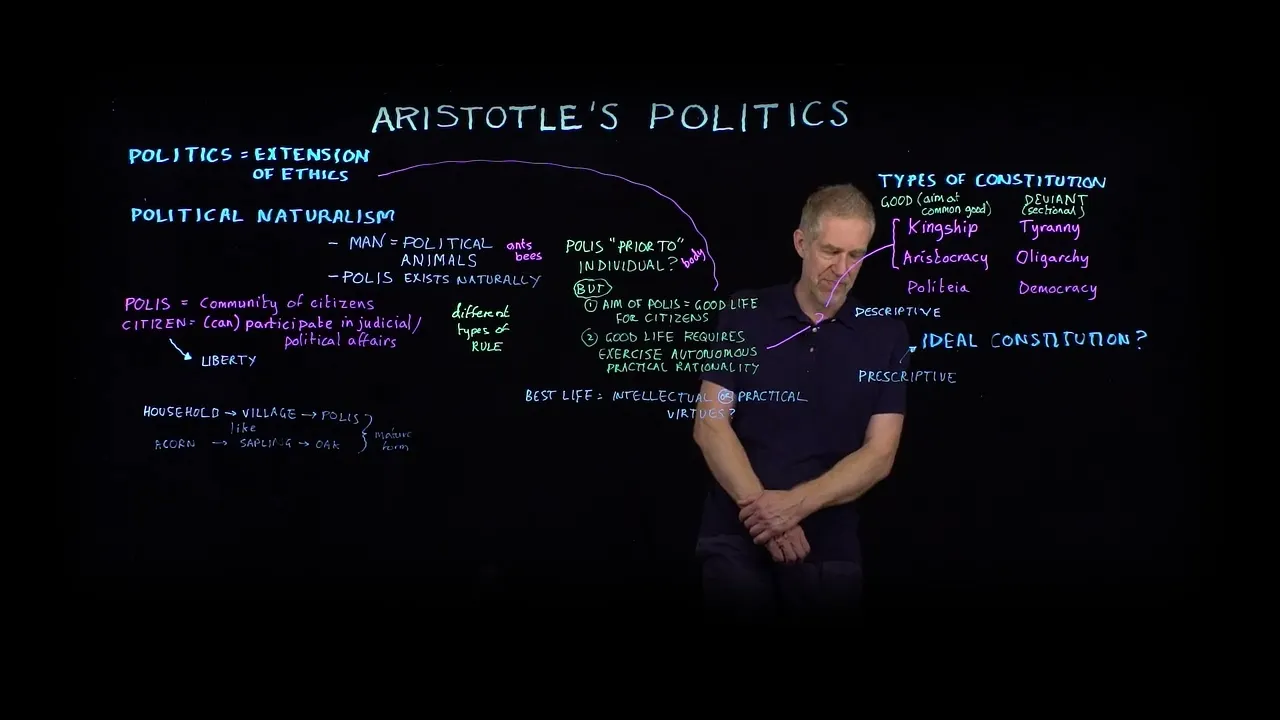 ARISTOTLE'S POLITICS
POLITICS = EXTENSION
OF ETHICS
POLITICAL NATURALISM
- MAN = POLITICAL
ANIMALS
ants
bees
- POLIS EXISTS NATURALLY
POLIS = Community of citizens
CITIZEN = (can) participate in judicial/
political affairs
LIBERTY
different
types of
RULE
HOUSEHOLD → VILLAGE → POLIS
like
ACORN → SAPLING → OAK
mature
form
POLIS "PRIOR TO"
INDIVIDUAL?
body
BUT
① AIM OF POLIS = GOOD LIFE
FOR CITIZENS
② GOOD LIFE REQUIRES
EXERCISE AUTONOMOUS
PRACTICAL RATIONALITY
?
BEST LIFE = INTELLECTUAL OR PRACTICAL
VIRTUES?
TYPES OF CONSTITUTION
GOOD (aim at
common good)
DEVIANT
(sectional)
Kingship Tyranny
Aristocracy Oligarchy
Politeia Democracy
DESCRIPTIVE
IDEAL CONSTITUTION?
PRESCRIPTIVE